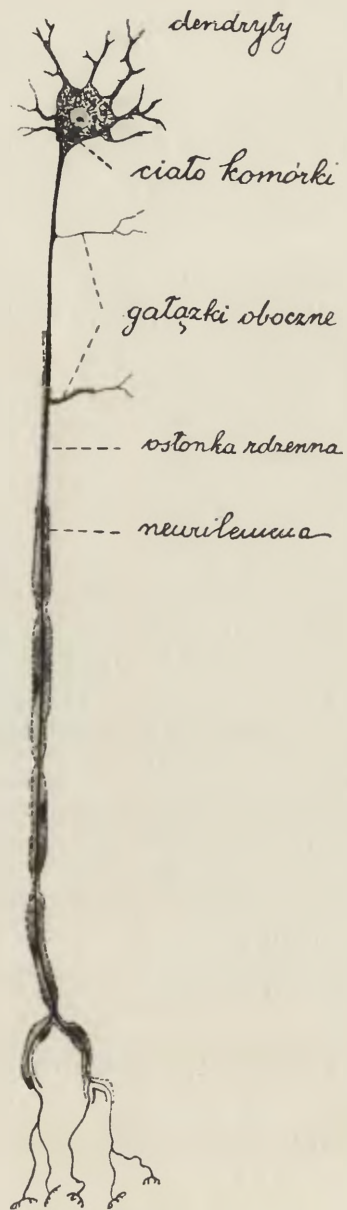 dendryty
ciało komórki
gałązki oboczne
osłonka rdzenna
neurilemma